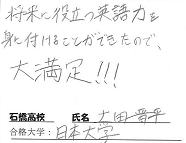 将来に役立つ英語力を
身に付けることができたので、
大満足!!!
石橋高校 氏名 大田 晋平
合格大学: 日本大学